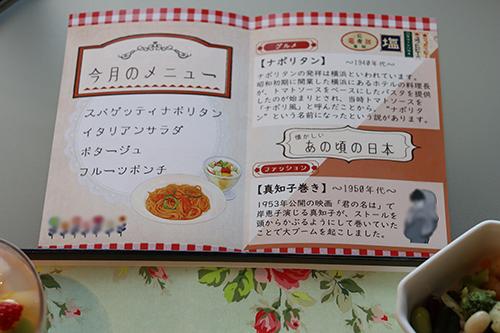 今月のメニュー
スパゲッティナポリタン
イタリアンサラダ
ポタージュ
フルーツポンチ
グルメ
塩
【ナポリタン】 〜1940年代〜
ナポリタンの発祥は横浜といわれています。
昭和初期に開業した横浜にあるホテルの料理長
が、トマトソースをベースにしたパスタを提供
したのが始まりとされ、当時トマトソースを
"ナポリ風"と呼んだことから、"ナポリタ
ン"という名前になったという説があります。
懐かしい
あの頃の日本
ファッション
【真知子巻き】 〜1950年代〜
1953年公開の映画「君の名は」で
岸恵子演じる真知子が、ストールを
頭からかぶるようにして巻いていた
ことで大ブームを起こしました。